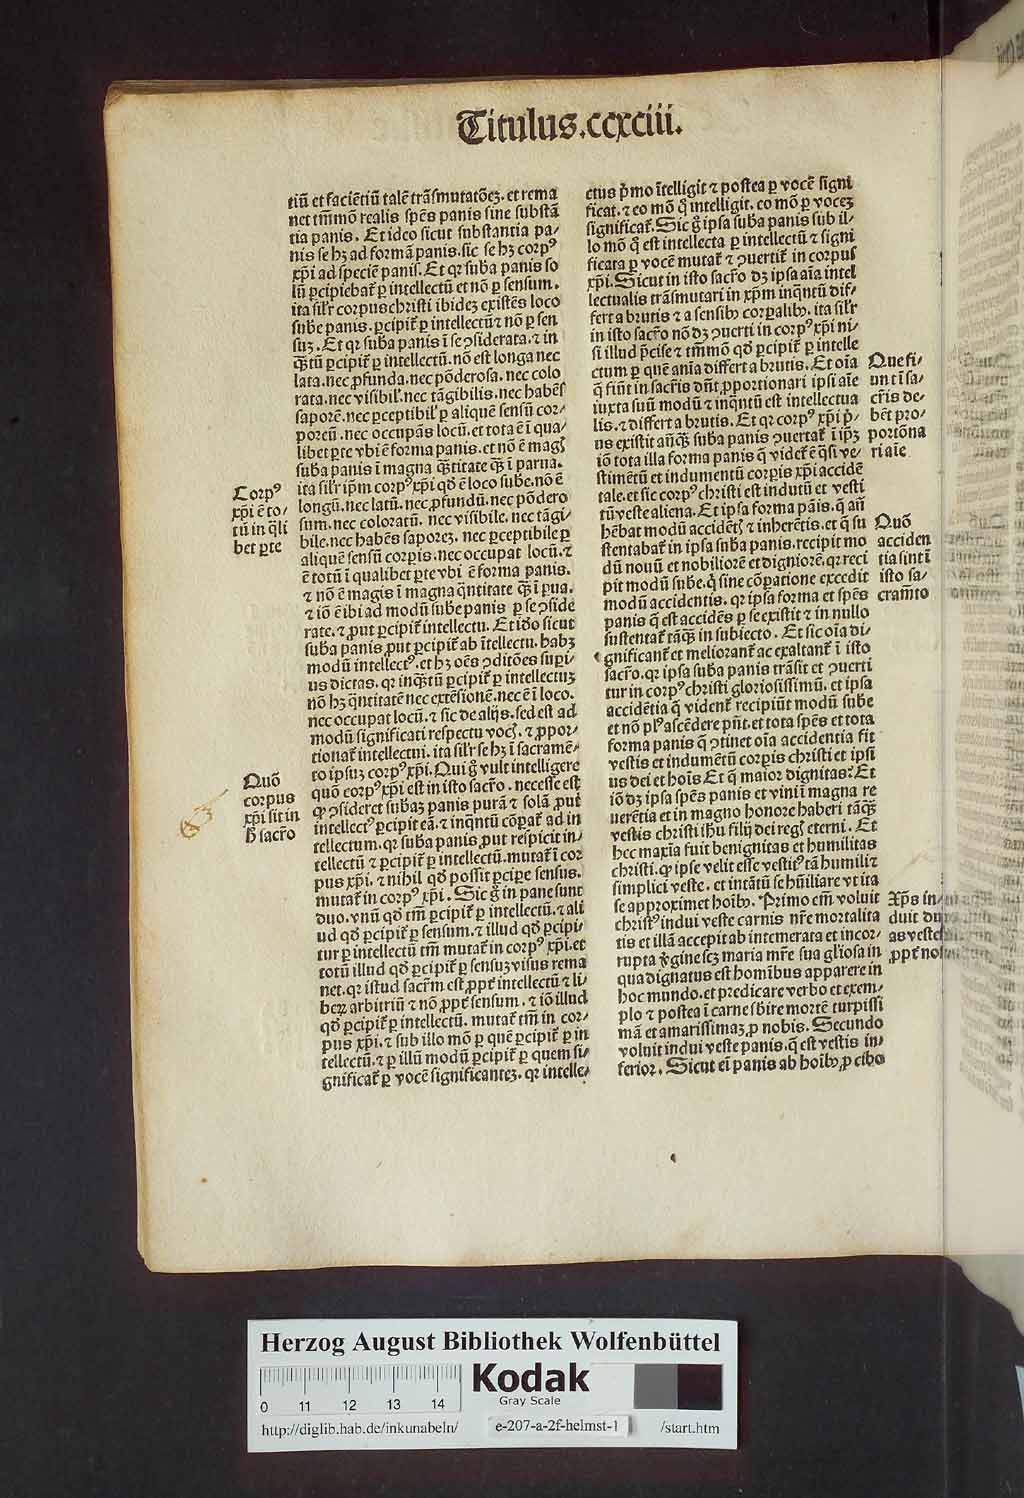 Titulus.ccxciii.
tiũ et faciẽtiũ talẽ trãsmutatõeʒ. et rema
net tm̃mõ realis spẽs panis sine substã
tia panis. Et ideo sicut substantia pa-
nis se hʒ ad formã panis. sic se hʒ corpꝰ
xp̃i ad speciẽ panis. Et qr suba panis so
lũ ꝑcipiebat̃ ꝑ intellectũ et nõ ꝑ sensum.
ita sil'r corpus christi ibideʒ existẽs loco
sube panis. ꝑcipit̃ ꝑ intellectũ ⁊ nõ ꝑ sen
suʒ. Et qr suba panis ĩ se ↄsiderata. ⁊ in
q̃ʒtũ ꝑcipit̃ ꝑ intellectũ. nõ est longa nec
lata. nec ꝓfunda. nec põderosa. nec colo
rata. nec visibil'. nec tãgibilis. nec habẽs
saporẽ. nec ꝑceptibil' ꝑ aliquẽ sensũ cor-
porẽũ. nec occupãs locũ. et tota ẽ ĩ qua-
libet ꝑte vbi ẽ forma panis. et nõ ẽ magꝭ
suba panis ĩ magna q̃ʒtitate q̃ʒ ĩ parua.
ita sil'r ip̃m corpꝰ xp̃i qd̃ ẽ loco sube. nõ ẽ
longũ. nec latũ. nec ꝓfundũ. nec põdero
sum. nec coloratũ. nec visibile. nec tãgi-
bile. nec habẽs saporeʒ. nec ꝑceptibile ꝑ
aliquẽ sensũ corꝑis. nec occupat locũ. ⁊
ẽ totũ ĩ qualibet ꝑte vbi ẽ forma panis.
⁊ nõ ẽ magis ĩ magna q̃ntitate q̃ʒ ĩ ꝑua.
⁊ iõ ẽ ibi ad modũ sube panis ꝑ se ↄside
rate. ⁊ ꝓut ꝑcipit̃ intellectu. Et id̃o sicut
suba panis ꝓut ꝑcipit̃ ab ĩtellectu. habʒ
modũ intellectꝰ. et hʒ oẽs ↄditões supi-
us dictas. qr inq̃ʒtũ ꝑcipit̃ ꝑ intellectuʒ
nõ hʒ q̃ntitatẽ nec extẽsionẽ. nec ẽ ĩ loco.
nec occupat locũ. ⁊ sic de alijs. sed est ad
modũ significati respectu vocꝭ. ⁊ ꝓpor-
tionat̃ intellectui. ita sil'r se hʒ ĩ sacramẽ-
to ipsuʒ corpꝰ xp̃i. Qui g̃ vult intelligere
quõ corpꝰ xp̃i est in isto sacr̃o. necesse est
ꝙ ↄsideret subaʒ panis purã ⁊ solã ꝓut
intellectꝰ ꝑcipit eã. ⁊ inq̃ntũ cõpat̃ ad in
tellectum. qr suba panis ꝓut respicit in-
tellectũ ⁊ ꝑcipit̃ ꝑ intellectũ. mutat̃ ĩ cor
pus xp̃i. ⁊ nihil qd̃ possit ꝑcipe sensus.
mutat̃ in corpꝰ xp̃i. Sic g̃ in pane sunt
duo. vnũ qd̃ tm̃ ꝑcipit̃ ꝑ intellectũ. ⁊ ali
ud qd̃ ꝑcipit̃ ꝑ sensum. ⁊ illud qd̃ ꝑcipi-
tur ꝑ intellectũ tm̃ mutat̃ in corpꝰ xp̃i. et
totũ illud qd̃ ꝑcipit̃ ꝑ sensuʒ visus rema
net. qr istud sacr̃m est ꝓpt̃ intellectũ ⁊ li-
beꝝ arbitriũ ⁊ nõ ꝓpt̃ sensum. ⁊ iõ illud
qd̃ ꝑcipit̃ ꝑ intellectũ. mutat̃ tm̃ in cor-
pus xp̃i. ⁊ sub illo mõ ꝑ quẽ ꝑcipit̃ ꝑ in
tellectũ. ⁊ ꝑ illũ modũ ꝑcipit̃ ꝑ quem si-
gnificat̃ ꝑ vocẽ significanteʒ. qr intelle-
Corpꝰ
xp̃i ẽ to-
tũ in q̃li
bet ꝑte
Quõ
corpus
xp̃i sit in
h̃ sacr̃o
ctus p̃mo ĩtelligit ⁊ postea ꝑ vocẽ signi
ficat. ⁊ eo mõ q̃ intelligit. eo mõ ꝑ voceʒ
significat̃. Sic g̃ ipsa suba panis sub il-
lo mõ q̃ est intellecta ꝑ intellectũ ⁊ signi
ficata ꝑ vocẽ mutat̃ ⁊ ↄuertit̃ in corpus
xp̃i. Sicut in isto sacr̃o dʒ ipsa aĩa intel
lectualis trãsmutari in xp̃m inq̃ntũ dif-
fert a brutis ⁊ a sensibꝫ corpalibꝫ. ita sil'r
in isto sacr̃o nõ dʒ ↄuerti in corpꝰ xp̃i ni-
si illud p̃cise ⁊ tm̃mõ qd̃ ꝑcipit̃ ꝑ intelle
ctum. ꝑ quẽ anĩa differt a brutis. Et oĩa
q̃ fiũt in sacr̃is dñt ꝓportionari ipsi aĩe
iuxta suũ modũ ⁊ inq̃ntũ est intellectua
lis. ⁊ differt a brutis. Et qr corpꝰ xp̃i p̃-
us existit añq̃ʒ suba panis ↄuertat̃ ĩ ip̃ʒ
iõ tota illa forma panis q̃ videt̃ ẽ q̃si ve-
stimẽtũ et indumentũ corꝑis xp̃i accidẽ
tale. et sic corpꝰ christi est indutũ et vesti
tũ veste aliena. Et ipsa forma panis. q̃ añ
hẽbat modũ accidẽtꝭ ⁊ inherẽtis. et q̃ su
stentabat̃ in ipsa suba panis. recipit mo
dũ nouũ et nobiliorẽ et digniorẽ. qr reci
pit modũ sube. q̃ sine cõpatione excedit
modũ accidentis. qr ipsa forma et spẽs
panis q̃ est accidẽs ꝑ se existit ⁊ in nullo
sustentat̃ tãq̃ʒ in subiecto. Et sic oĩa di-
gnificant̃ et meliorant̃ ac exaltant̃ ĩ isto
sacr̃o. qr ipsa suba panis trãsit et ↄuerti
tur in corpꝰ christi gloriosissimũ. et ipsa
accidẽtia q̃ vident̃ recipiũt modũ sube
et nõ plꝰ ascẽdere pñt. et tota spẽs et tota
forma panis q̃ ↄtinet oĩa accidentia fit
vestis et indumẽtũ corꝑis christi et ipsi
us dei et hoĩs Et q̃ maior dignitas? Et
iõ dʒ ipsa spẽs panis et vini ĩ magna re
uerẽtia et in magno honore haberi tãq̃ʒ
vestis christi ihũ filij dei regꝭ eterni. Et
hec maxĩa fuit benignitas et humilitas
christi. ꝙ ipse velit esse vestitꝰ tã humili ⁊
simplici veste. et intãtũ se hũiliare vt ita
se approximet hoĩbꝫ. Primo em̃ voluit
christꝰ indui veste carnis nr̃e mortalita
tis et illã accepit ab intemerata et incor-
rupta v̓gine scʒ maria mr̃e sua gl'iosa in
qua dignatus est homĩbus apparere in
hoc mundo. et predicare verbo et exem-
plo ⁊ postea ĩ carne sb̃ire mortẽ turpissi
mã et amarissimaʒ ꝓ nobis. Secundo
voluit indui veste panis. q̃ est vestis in-
ferior. Sicut eĩ panis ab hoĩbꝫ ꝓ cibo
Que fi-
unt ĩ sa-
cr̃is de-
bẽt pro-
portõna
ri aĩe
Quõ
acciden
tia sint ĩ
isto sa-
cram̃to
Xp̃s in-
duit du
as veste
ꝓpt̃ no
Herzog August Bibliothek Wolfenbüttel
0 11 12 13 14
Kodak
Gray Scale
http://diglib.hab.de/inkunabeln/ e-207-a-2f-helmst-1 /start.htm